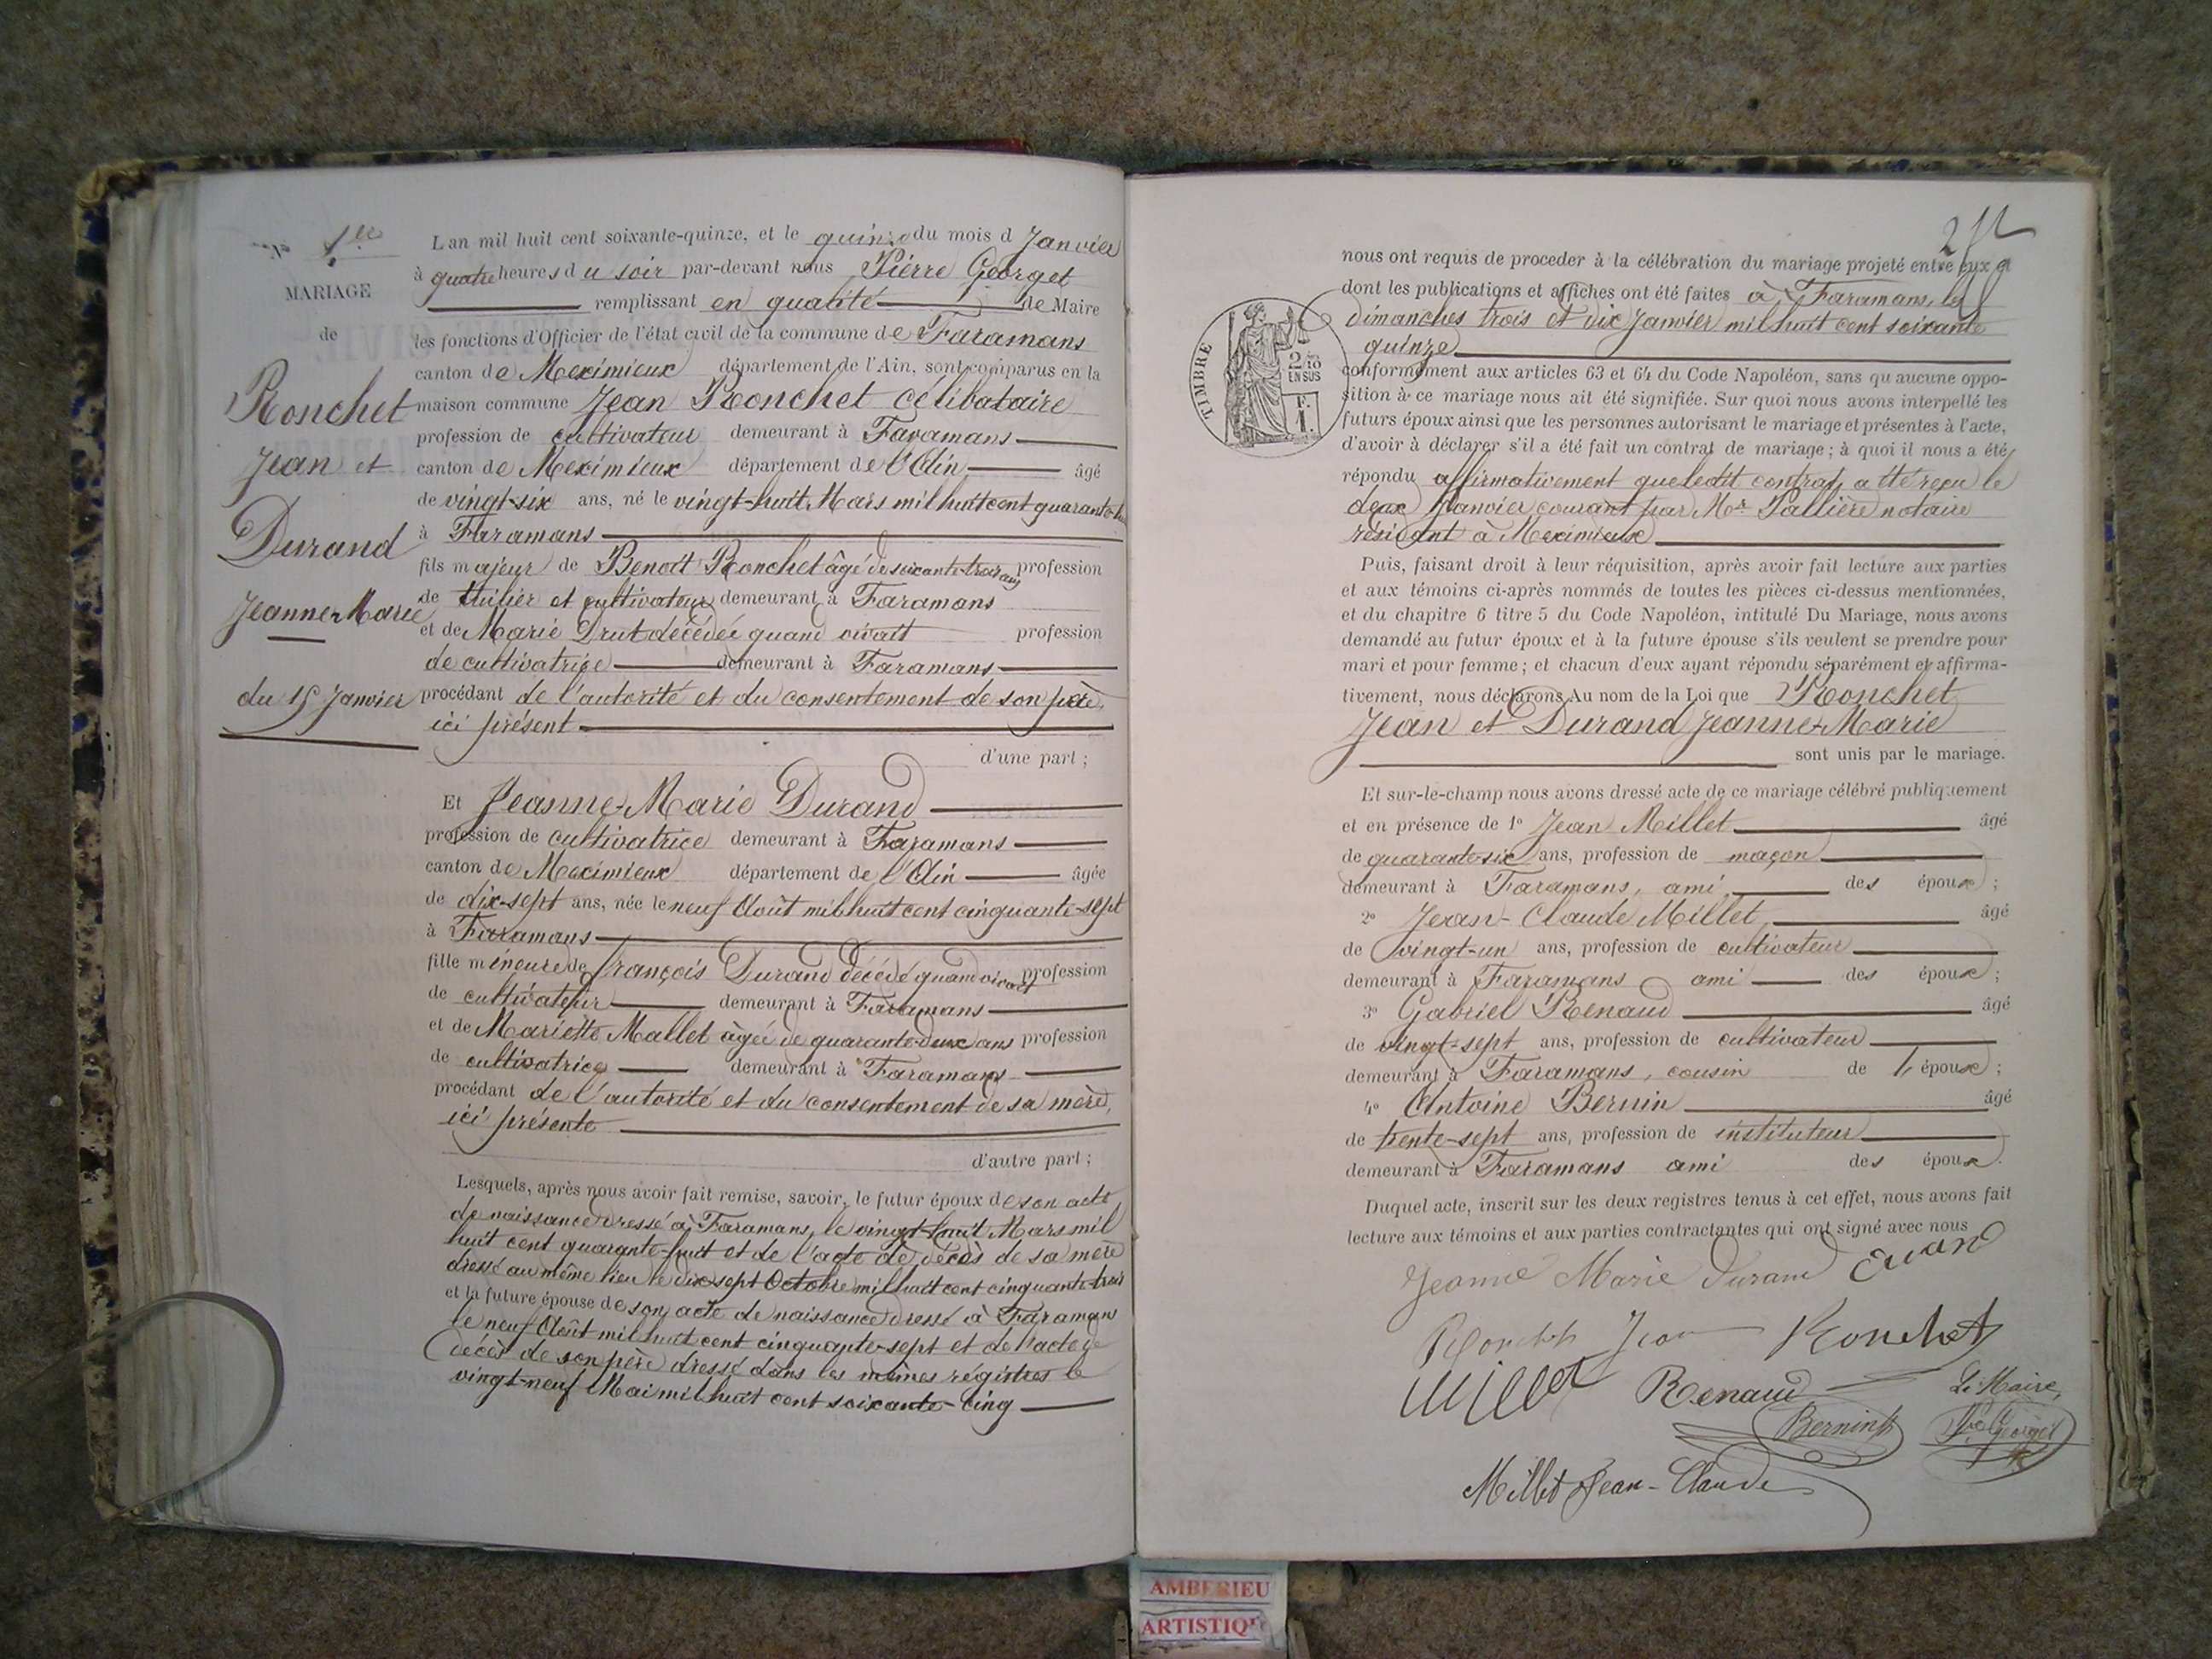 N° 1er
MARIAGE
de
Ronchet
Jean et
Durand
Jeanne-Marie
du 15 Janvier
L'an mil huit cent soixante-quinze, et le quinze du mois d Janvier
à quatre heures du soir par-devant nous Pierre Georget
remplissant en qualité de Maire
les fonctions d'Officier de l'état civil de la commune de Faramans
canton de Meximieux département de l'Ain, sont comparus en la
maison commune Jean Ronchet célibataire
profession de cultivateur demeurant à Faramans
canton de Meximieux département de l'Ain âgé
de vingt-six ans, né le vingt-huit Mars mil huit cent quarante-huit
à Faramans
fils majeur de Benoit Ronchet âgé de soixante-trois ans profession
de tuilier et cultivateur demeurant à Faramans
et de Marie Drut décédée quand vivait profession
de cultivatrice demeurant à Faramans
procédant de l'autorité et du consentement de son père,
ici présent
d'une part ;
Et Jeanne-Marie Durand
profession de cultivatrice demeurant à Faramans
canton de Meximieux département de l'Ain âgée
de dix-sept ans, née le neuf Août mil huit cent cinquante-sept
à Faramans
fille mineure de françois Durand décédé quand vivait profession
de cultivateur demeurant à Faramans
et de Mariette Mallet âgée de quarante-deux ans profession
de cultivatrice demeurant à Faramans
procédant de l'autorité et du consentement de sa mère,
ici présente
d'autre part ;
Lesquels, après nous avoir fait remise, savoir, le futur époux de son acte
de naissance dressé à Faramans, le vingt-huit Mars mil
huit cent quarante-huit et de l'acte de décès de sa mère
dressé au même lieu le dix-sept Octobre mil huit cent cinquante-trois
et la future épouse de son acte de naissance dressé à Faramans
le neuf Août mil huit cent cinquante-sept et de l'acte de
décès de son père dressé dans les mêmes régistres le
vingt-neuf Mai mil huit cent soixante-cinq
nous ont requis de proceder à la célébration du mariage projeté entre eux et
dont les publications et affiches ont été faites à Faramans, les
dimanches trois et dix Janvier mil huit cent soixante
quinze
TIMBRE
2/10
EN SUS
conformément aux articles 63 et 64 du Code Napoléon, sans qu'aucune oppo-
sition à ce mariage nous ait été signifiée. Sur quoi nous avons interpellé les
futurs époux ainsi que les personnes autorisant le mariage et présentes à l'acte,
d'avoir à déclarer s'il a été fait un contrat de mariage ; à quoi il nous a été
répondu affirmativement que ledit contrat a été reçu le
deux Janvier courant par Mr Pallière notaire
résidant à Meximieux
Puis, faisant droit à leur réquisition, après avoir fait lecture aux parties
et aux témoins ci-après nommés de toutes les pièces ci-dessus mentionnées,
et du chapitre 6 titre 5 du Code Napoléon, intitulé Du Mariage, nous avons
demandé au futur époux et à la future épouse s'ils veulent se prendre pour
mari et pour femme ; et chacun d'eux ayant répondu séparément et affirma-
tivement, nous déclarons Au nom de la Loi que Ronchet
Jean et Durand Jeanne-Marie
sont unis par le mariage.
Et sur-le-champ nous avons dressé acte de ce mariage célébré publiquement
et en présence de 1° Jean Millet âgé
de quarante-six ans, profession de maçon
demeurant à Faramans, ami des époux ;
2° Jean-Claude Millet âgé
de vingt-un ans, profession de cultivateur
demeurant à Faramans ami des époux ;
3° Gabriel Renaud âgé
de vingt-sept ans, profession de cultivateur
demeurant à Faramans, cousin de l'époux ;
4° Antoine Bernin âgé
de trente-sept ans, profession de instituteur
demeurant à Faramans ami des époux.
Duquel acte, inscrit sur les deux registres tenus à cet effet, nous avons fait
lecture aux témoins et aux parties contractantes qui ont signé avec nous
Jeanne Marie Durand
Ronchet Jean Ronchet
Millet Renaud Le Maire,
Bernin Georget
Millet Jean-Claude
AMBERIEU
ARTISTIQUE